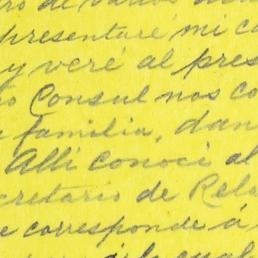 ro de varios
presentaré mi ca
y veré al pres
o Consul nos co
a familia, dan
Alli conoci al
cretario de Rela
e corresponde á